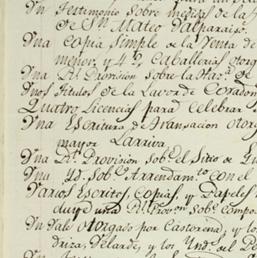 Un Testimonio sobre medida de la
de Sn. Mateo Valparaiso.
Una Copia Simple de la Venta de
menor, y 4.. Caballerias otorg
Una Rl. Provision sobre la
Unos titulos de la Lavor de Corado
Quatro Licencias para celebrar
Una Escritura de transacion otorg
mayor Larriva.
Una Rl. Provision sobe. el Sitio de
Una Yd. Sobe. Arrendamto. con el
Varios Escritos, Copias, y Papeles
cluye una Rl. Provon. sobe. compo
Un Vale otorgado por Castorena, y lo
driza Velarde, y los